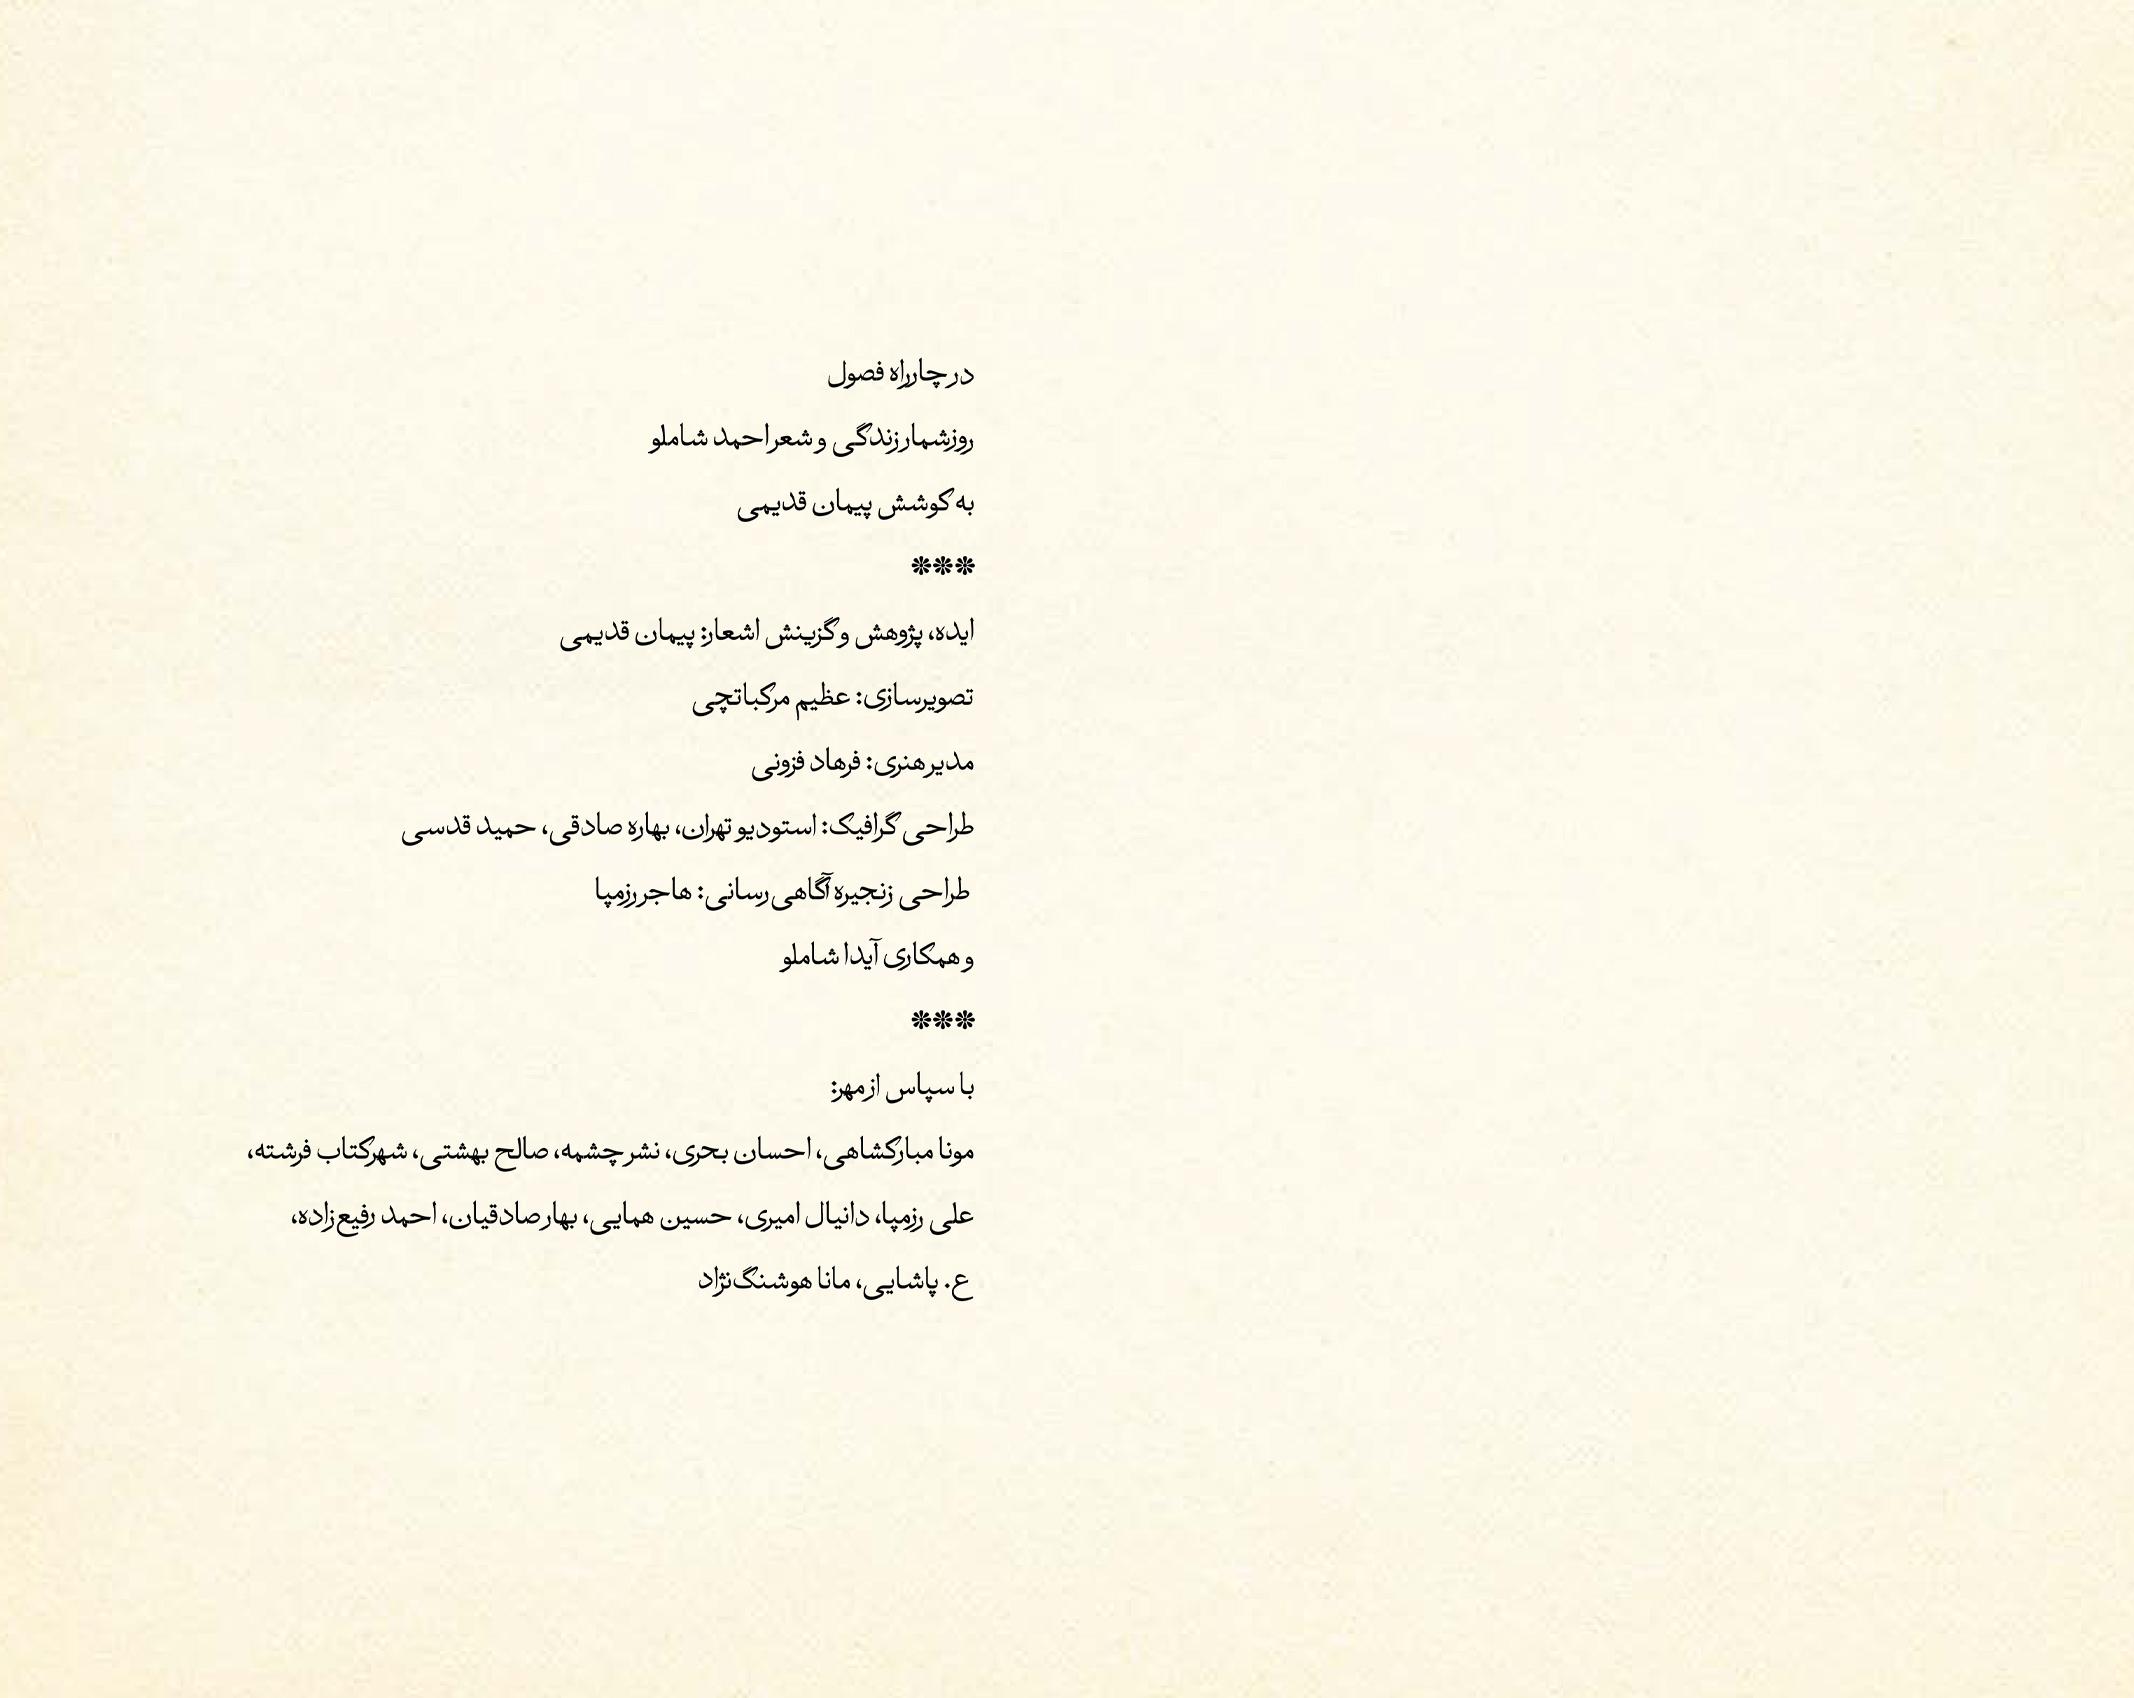 در چارراه فصول
روزشمار زندگی و شعر احمد شاملو
به کوشش پیمان قدیمی
***
ایده، پژوهش و گزینش اشعار: پیمان قدیمی
تصویرسازی: عظیم مرکباتچی
مدیر هنری: فرهاد فزونی
طراحی گرافیک: استودیو تهران، بهاره صادقی، حمید قدسی
طراحی زنجیره آگاهی‌رسانی: هاجر رزمپا
و همکاری آیدا شاملو
***
با سپاس از مهر:
مونا مبارکشاهی، احسان بحری، نشر چشمه، صالح بهشتی، شهرکتاب فرشته،
علی رزمپا، دانیال امیری، حسین همایی، بهار صادقیان، احمد رفیع‌زاده،
ع. پاشایی، مانا هوشنگ‌نژاد